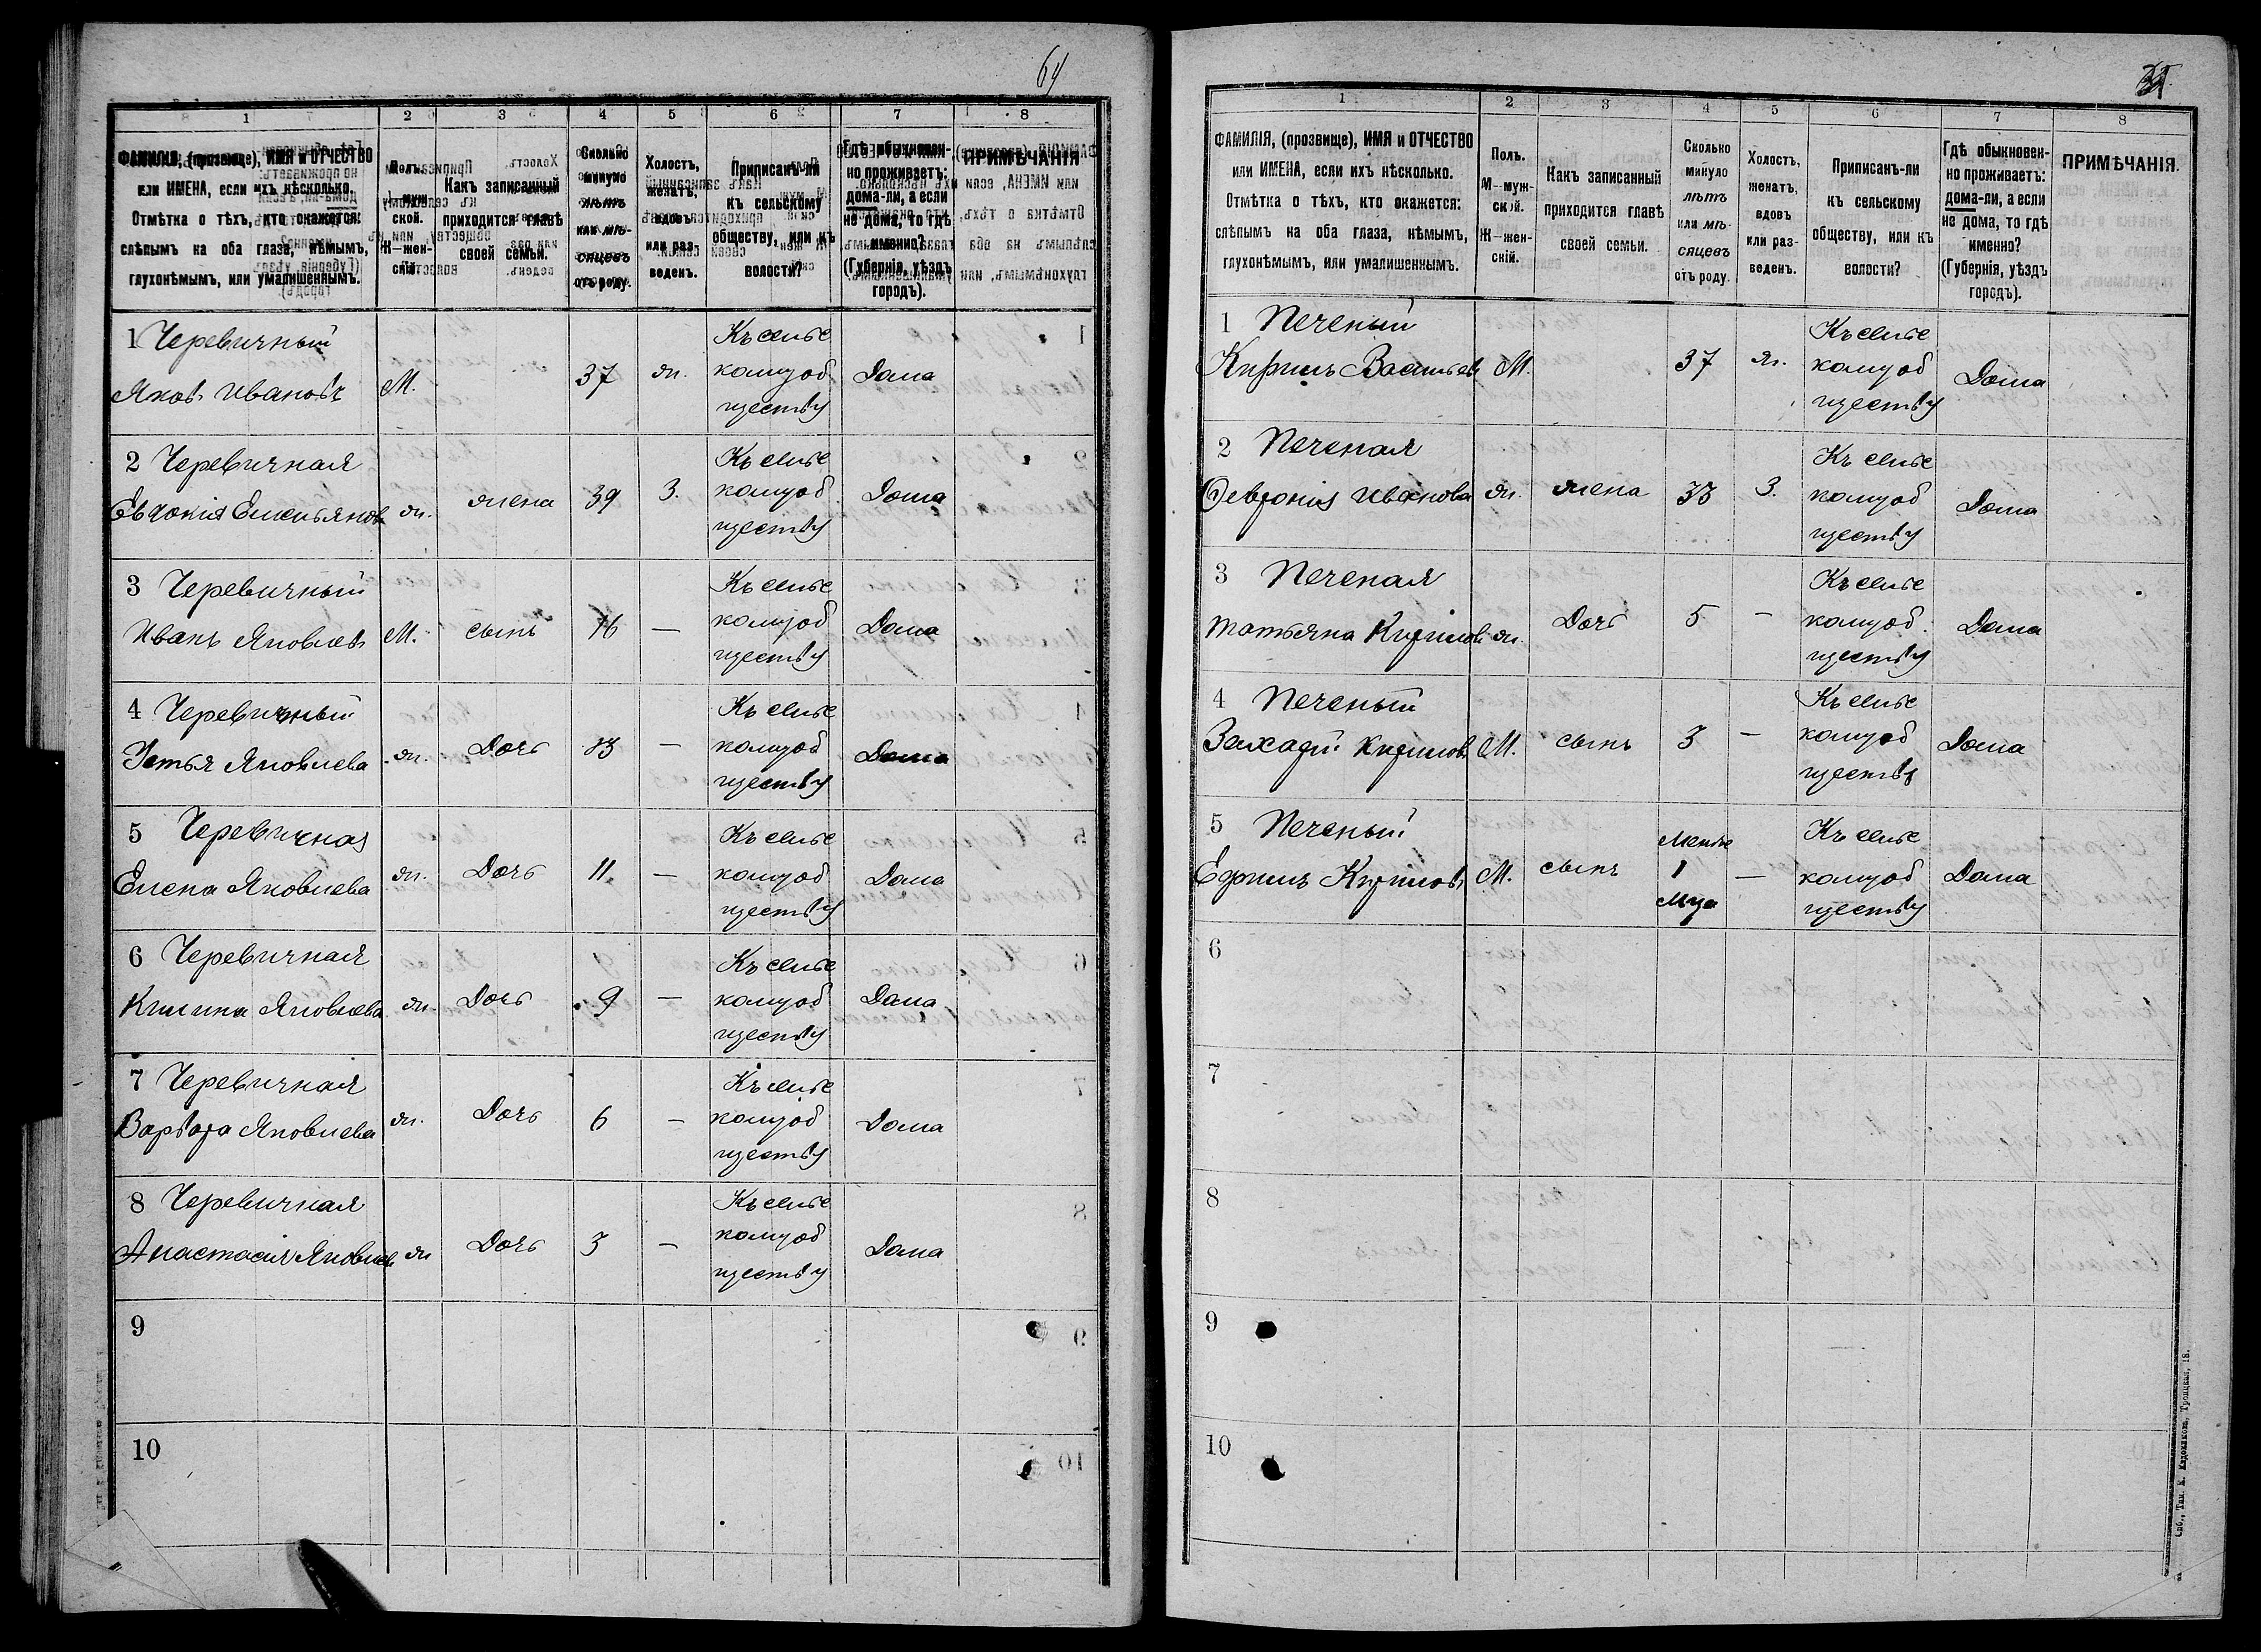 64
1
2
3
4
5
6
7
8
ФАМИЛІЯ, (прозвище), ИМЯ и ОТЧЕСТВО
или ИМЕНА, если ихъ нѣсколько.
Отмѣтка о тѣхъ, кто окажется:
слѣпымъ на оба глаза, нѣмымъ,
глухонѣмымъ, или умалишеннымъ.
Полъ.
М—муж-
ской.
Ж—жен-
скій.
Какъ записанный
приходится главѣ
своей семьи.
Сколько
минуло
лѣтъ
или мѣ-
сяцевъ
отъ роду.
Холостъ,
женатъ,
вдовъ
или раз-
веденъ.
Приписанъ-ли
къ сельскому
обществу, или къ
волости?
Гдѣ обыкновен-
но проживаетъ:
дома-ли, а если
не дома, то гдѣ
именно?
(Губернія, уѣздъ
городъ).
ПРИМѢЧАНІЯ
1 Черевичный
Яковъ Ивановъ
М.
37
ж.
Къ сельс
комуоб
ществу
Дома
2 Черевичная
Евдокія Емельянов
ж.
жена
39
З.
Къ сельс
комуоб
ществу
Дома
3 Черевичный
Иванъ Яковлевъ
М.
сынъ
16
—
Къ сельс
комуоб
ществу
Дома
4 Черевичный
Устья Яковлева
ж.
Дочь
13
—
Къ сельс
комуоб
ществу
Дома
5 Черевичная
Елена Яковлева
ж.
Дочь
11
—
Къ сельс
комуоб
ществу
Дома
6 Черевичная
Килина Яковлева
ж.
Дочь
9
—
Къ сельс
комуоб
ществу
Дома
7 Черевичная
Варвара Яковлева
ж.
Дочь
6
—
Къ сельс
комуоб
ществу
Дома
8 Черевичная
Анастасія Яковлев
ж
Дочь
3
—
Къ сельс
комуоб
ществу
Дома
9
10
1
2
3
4
5
6
7
8
ФАМИЛІЯ, (прозвище), ИМЯ и ОТЧЕСТВО
или ИМЕНА, если ихъ нѣсколько.
Отмѣтка о тѣхъ, кто окажется:
слѣпымъ на оба глаза, нѣмымъ,
глухонѣмымъ, или умалишеннымъ.
Полъ.
М—муж-
ской.
Ж—жен-
скій.
Какъ записанный
приходится главѣ
своей семьи.
Сколько
минуло
лѣтъ
или мѣ-
сяцевъ
отъ роду.
Холостъ,
женатъ,
вдовъ
или раз-
веденъ.
Приписанъ-ли
къ сельскому
обществу, или къ
волости?
Гдѣ обыкновен-
но проживаетъ:
дома-ли, а если
не дома, то гдѣ
именно?
(Губернія, уѣздъ
городъ).
ПРИМѢЧАНІЯ.
1 Печеный
Кирилъ Васильев
М.
37
ж.
Къ сельс
комуоб
ществу
Дома
2 Печеная
Февронія Иванова
ж.
жена
33
З.
Къ сельс
комуоб
ществу
Дома
3 Печеная
Татьяна Кирилов
ж.
Дочь
5
—
Къ сельс
комуоб.
ществу
Дома
4 Печеный
Захарій Кирилов
М.
сынъ
3
—
Къ сельс
комуоб
ществу
Дома
5 Печеный
Кириловъ
М.
сынъ
Менѣе
1
м҃ца
—
Къ сельс
комуоб
ществу
Дома
6
7
8
9
10